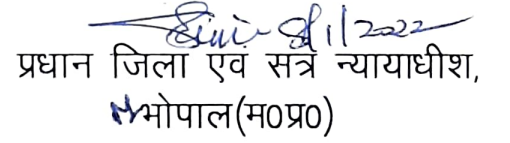 /1/2022
प्रधान जिला एवं सत्र न्यायाधीश,
भोपाल(म0प्र0)